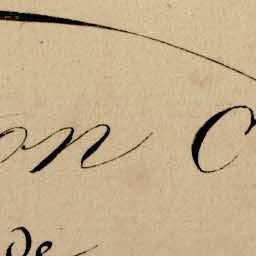 on C
de